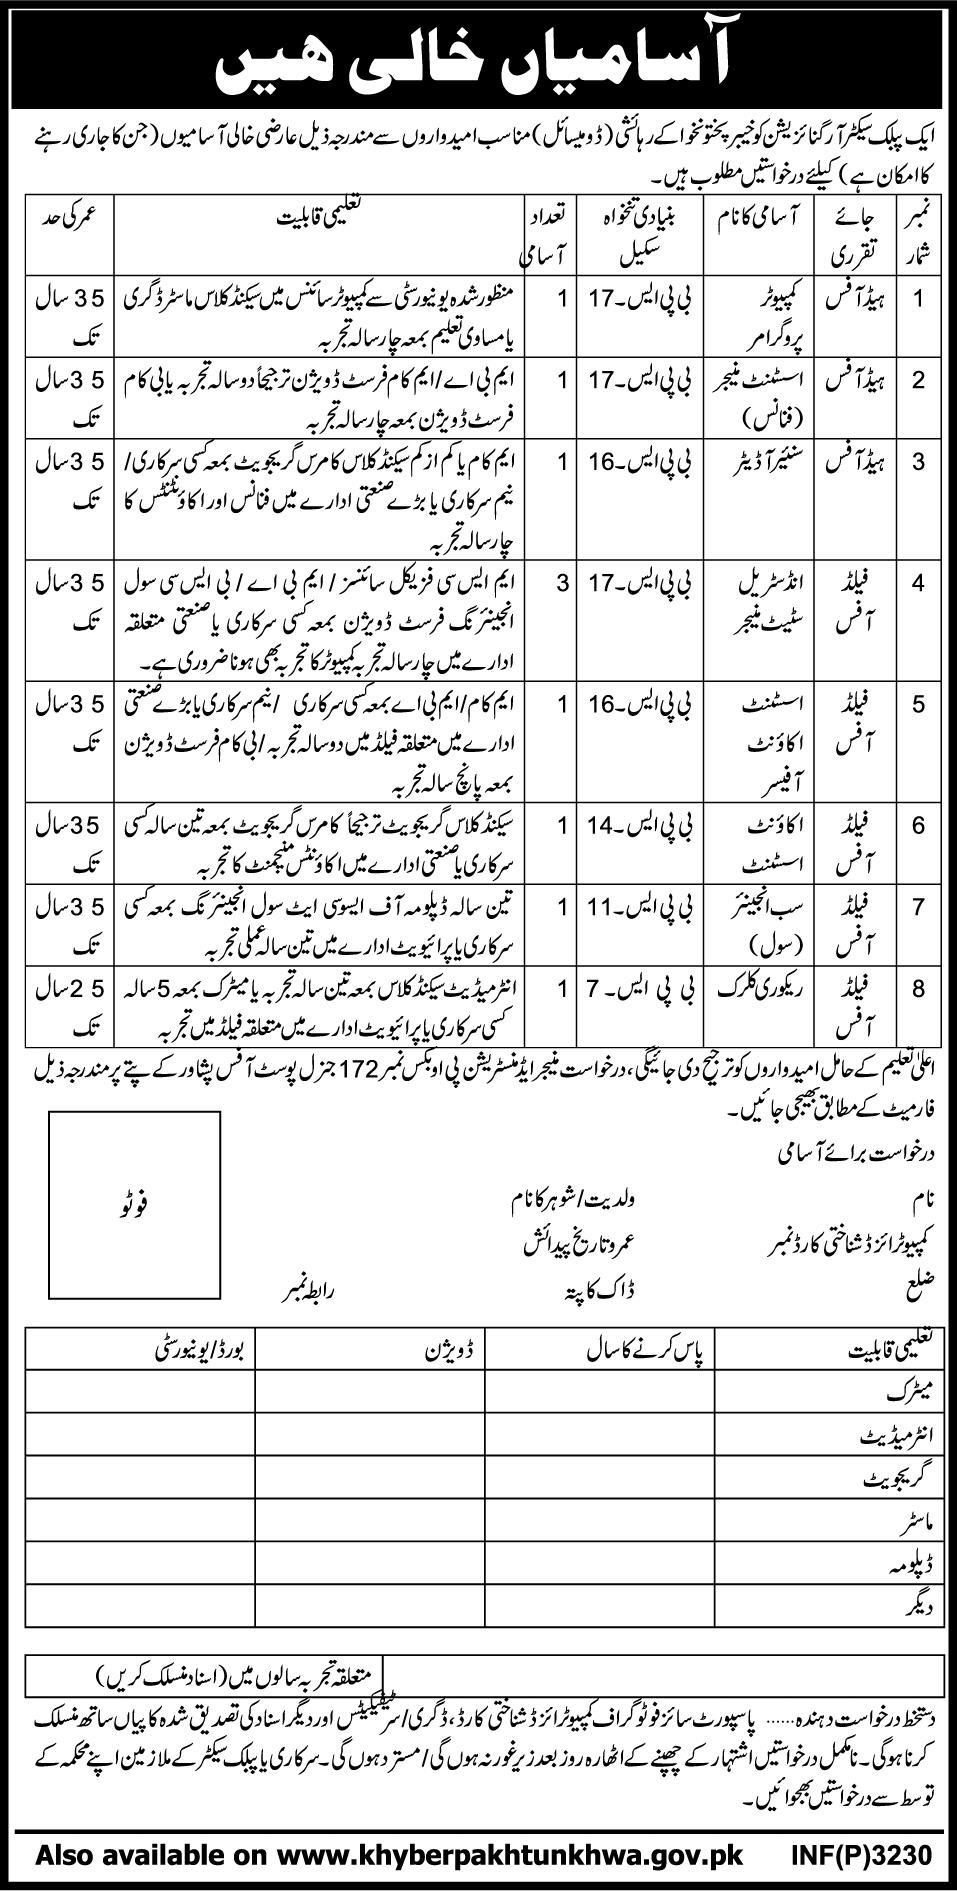 آسامیاں خالی ھیں
ایک پبلک سیکٹر آرگنائزیشن کو خیبر پختونخوا کے رہائشی (ڈومیسائل) مناسب امیدواروں سے مندرجہ ذیل عارضی خالی آسامیوں (جن کا جاری رہنے
کا امکان ہے) کیلئے درخواستیں مطلوب ہیں۔
نمبر شمار | جائے تقرری | آسامی کا نام | بنیادی تنخواہ سکیل | تعداد آسامی | تعلیمی قابلیت | عمر کی حد
1 | ہیڈ آفس | کمپیوٹر پروگرامر | بی پی ایس۔17 | 1 | منظور شدہ یونیورسٹی سے کمپیوٹر سائنس میں سیکنڈ کلاس ماسٹر ڈگری یا مساوی تعلیم بمعہ چار سالہ تجربہ | 35 سال تک
2 | ہیڈ آفس | اسسٹنٹ منیجر (فنانس) | بی پی ایس۔17 | 1 | ایم بی اے/ایم کام فرسٹ ڈویژن ترجیحاً دو سالہ تجربہ یا بی کام فرسٹ ڈویژن بمعہ چار سالہ تجربہ | 35 سال تک
3 | ہیڈ آفس | سنئیر آڈیٹر | بی پی ایس۔16 | 1 | ایم کام یا کم از کم سیکنڈ کلاس کامرس گریجویٹ بمعہ کسی سرکاری/ نیم سرکاری یا بڑے صنعتی ادارے میں فنانس اور اکاؤنٹنٹس کا چار سالہ تجربہ | 35 سال تک
4 | فیلڈ آفس | انڈسٹریل سٹیٹ منیجر | بی پی ایس۔17 | 3 | ایم ایس سی فزیکل سائنسز / ایم بی اے / بی ایس سی سول انجینئرنگ فرسٹ ڈویژن بمعہ کسی سرکاری یا صنعتی متعلقہ ادارے میں چار سالہ تجربہ کمپیوٹر کا تجربہ بھی ہونا ضروری ہے۔ | 35 سال تک
5 | فیلڈ آفس | اسسٹنٹ اکاؤنٹ آفیسر | بی پی ایس۔16 | 1 | ایم کام/ایم بی اے بمعہ کسی سرکاری /نیم سرکاری یا بڑے صنعتی ادارے میں متعلقہ فیلڈ میں دو سالہ تجربہ/بی کام فرسٹ ڈویژن بمعہ پانچ سالہ تجربہ | 35 سال تک
6 | فیلڈ آفس | اکاؤنٹ اسسٹنٹ | بی پی ایس۔14 | 1 | سیکنڈ کلاس گریجویٹ ترجیحاً کامرس گریجویٹ بمعہ تین سالہ کسی سرکاری یا صنعتی ادارے میں اکاؤنٹس منیجمنٹ کا تجربہ | 35 سال تک
7 | فیلڈ آفس | سب انجینئر (سول) | بی پی ایس۔11 | 1 | تین سالہ ڈپلومہ آف ایسوسی ایٹ سول انجینئرنگ بمعہ کسی سرکاری یا پرائیویٹ ادارے میں تین سالہ عملی تجربہ | 35 سال تک
8 | فیلڈ آفس | ریکوری کلرک | بی پی ایس۔7 | 1 | انٹرمیڈیٹ سیکنڈ کلاس بمعہ تین سالہ تجربہ یا میٹرک بمعہ 5 سالہ کسی سرکاری یا پرائیویٹ ادارے میں متعلقہ فیلڈ میں تجربہ | 25 سال تک
اعلیٰ تعلیم کے حامل امیدواروں کو ترجیح دی جائیگی، درخواست منیجر ایڈمنسٹریشن پی او بکس نمبر 172 جنرل پوسٹ آفس پشاور کے پتے پر مندرجہ ذیل
فارمیٹ کے مطابق بھیجی جائیں۔
درخواست برائے آسامی
نام ولدیت/شوہر کا نام
کمپیوٹرائزڈ شناختی کارڈ نمبر عمر و تاریخ پیدائش
ضلع ڈاک کا پتہ رابطہ نمبر
فوٹو
تعلیمی قابلیت | پاس کرنے کا سال | ڈویژن | بورڈ/یونیورسٹی
میٹرک
انٹرمیڈیٹ
گریجویٹ
ماسٹر
ڈپلومہ
دیگر
متعلقہ تجربہ سالوں میں (اسناد منسلک کریں)
دستخط درخواست دہندہ...... پاسپورٹ سائز فوٹو گراف کمپیوٹرائزڈ شناختی کارڈ، ڈگری/سرٹیفکیٹس اور دیگر اسناد کی تصدیق شدہ کاپیاں ساتھ منسلک
کرنا ہوگی۔ نامکمل درخواستیں اشتہار کے چھپنے کے اٹھارہ روز بعد زیر غور نہ ہوں گی/مسترد ہوں گی۔ سرکاری یا پبلک سیکٹر کے ملازمین اپنے محکمہ کے
توسط سے درخواستیں بھجوائیں۔
Also available on www.khyberpakhtunkhwa.gov.pk INF(P)3230